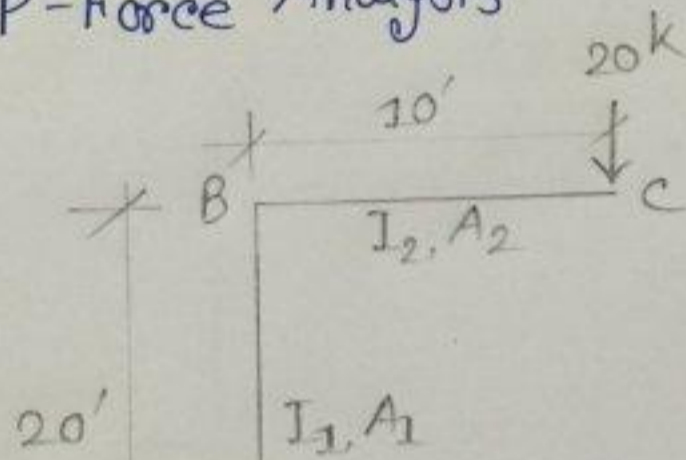 P-Force Analysis
20k
10'
B
C
I2, A2
20'
I1, A1